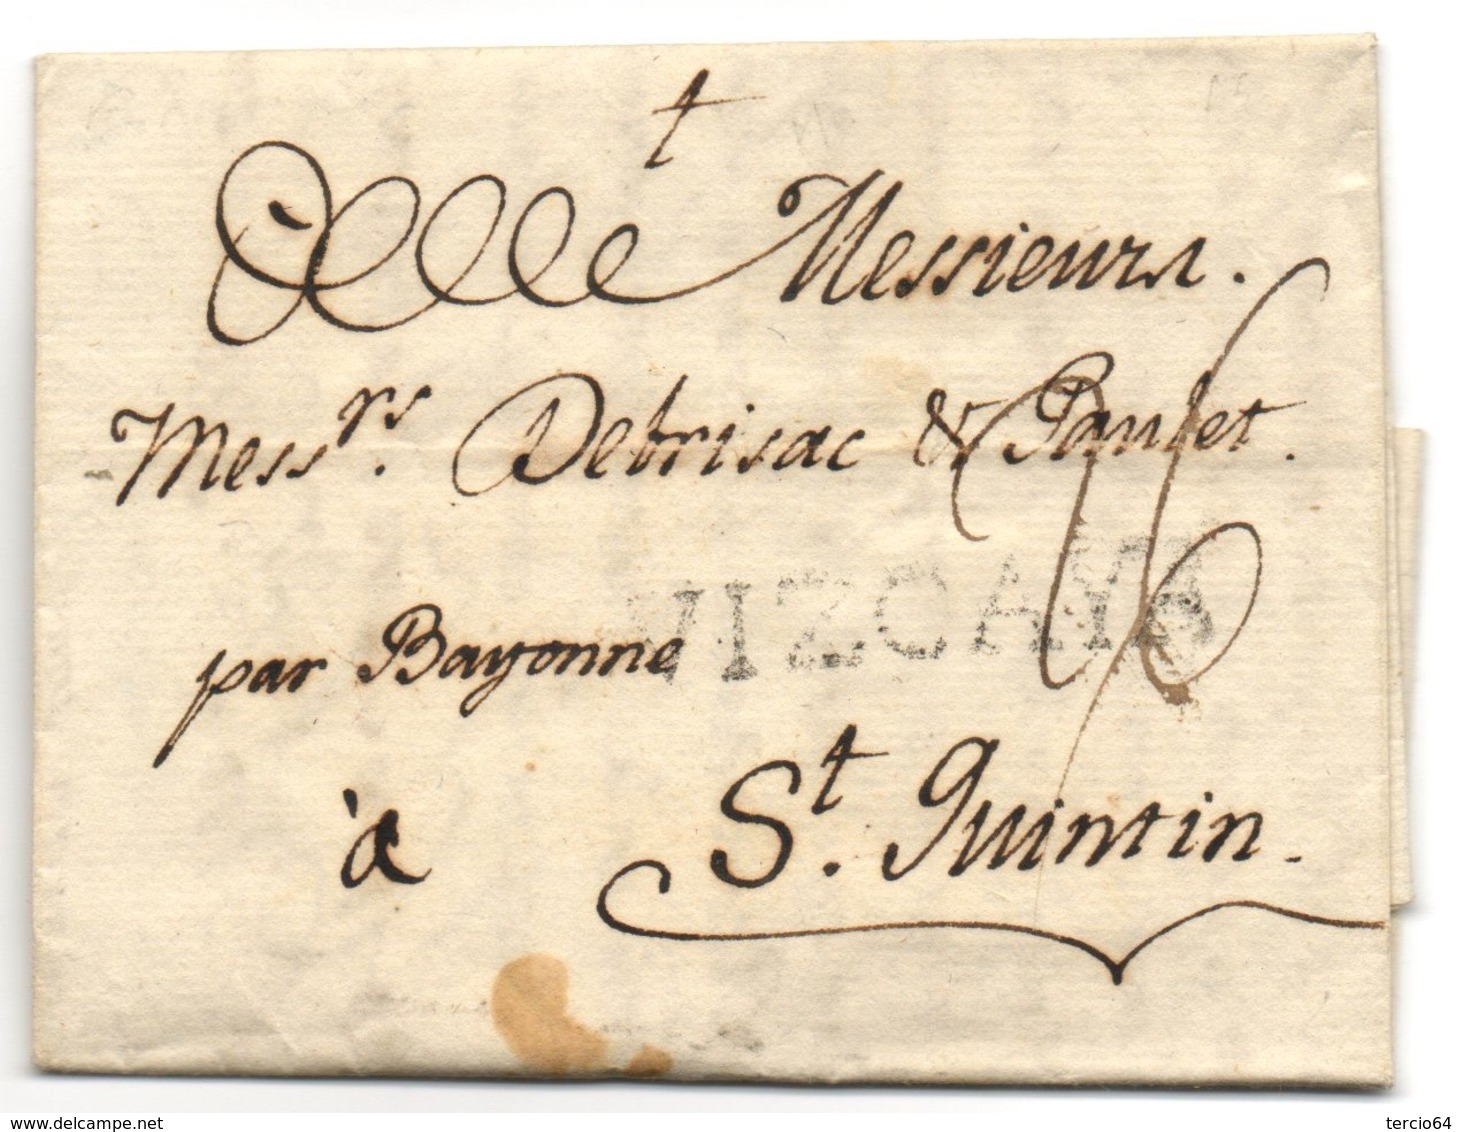 Messieurs.
Mess.rs Debrisac & Paulet.
26
VIZCAYA
par Bayonne
à St. Quintin.
www.delcampe.net
tercio64